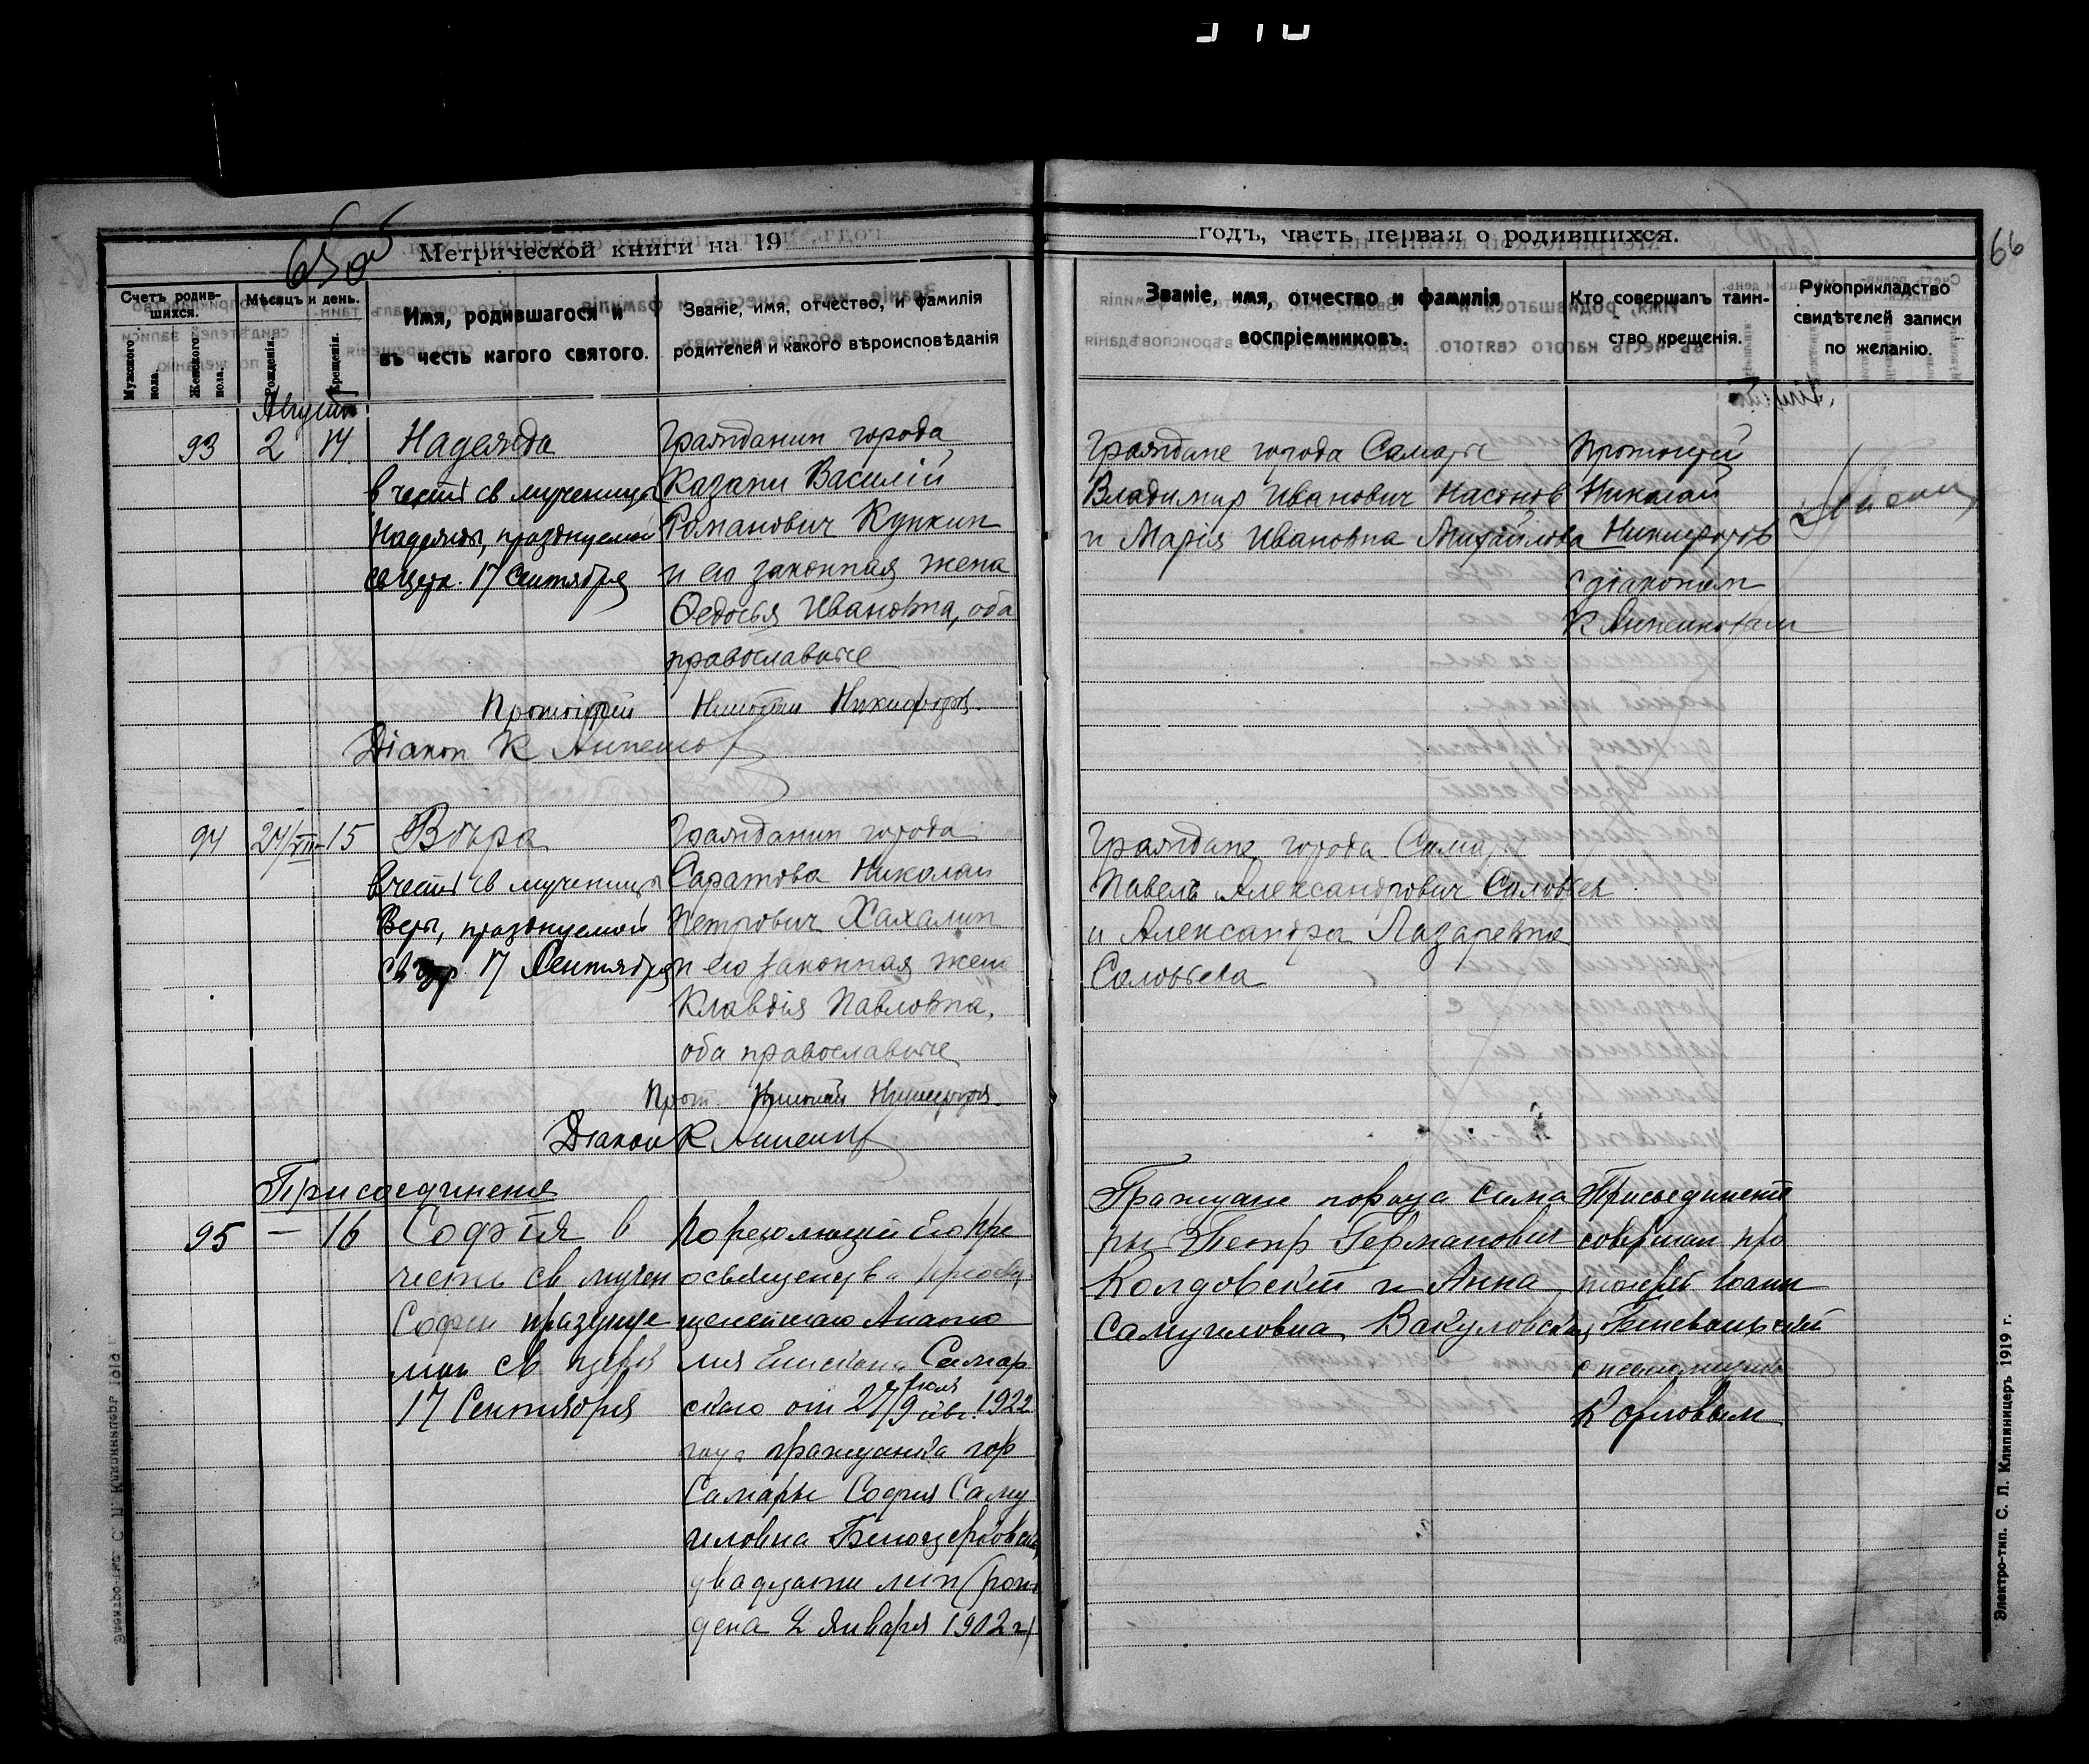 66
Метрической книги на 19
годъ, часть первая о родившихся.
Счетъ родив-
шихся.
Мужского
пола.
Женского
пола.
Мѣсяцъ и день.
Рожденія.
Крещенія.
Имя, родившагося и
въ честь кагого святого.
Званіе, имя, отчество, и фамилія
родителей и какого вѣроисповѣданія
Званіе, имя, отчество и фамилія
воспріемниковъ.
Кто совершалъ таин-
ство крещенія.
Рукоприкладство
свидѣтелей записи
по желанію.
Август
93 2 14 Надежда
в честь св мученицы
Надежды, празднуемой
17 Сентября
Гражданин города
Казани Василій
Романович Купкин
и его законная жена
Ѳедосья Ивановна, оба
православные
Граждане города Самары
Владимир Иванович Насонов
и Марія Ивановна Михайлова
Протоіерей
Николай
Никифоров
с діаконом
К
Протоіерей Николай Никифоров.
Діакон К
94 24/VII 15 Вѣра
в честь св мученицы
Веры, празднуемой
17 Сентября
Гражданин города
Саратова Николай
Петрович Хахалин
и его законная жена
Клавдія Павловна,
оба православные
Граждане города Самары
Павелъ Александрович Соловьев
и Александра Лазаревна
Соловьева
Прот. Николай Никифоров.
Діакон К
Присоединение
95 — 16 Софія в
честь св мучен
Софии празднуе
мой св церк
17 Сентября
По резолюции Его Пре
освященства Преосвя
щеннейшего Анато
лия Епископа Самар
ского от 27 июля/9 авг. 1922
года гражданка гор
Самары София Саму
иловна Белоцерковская
двадцати лет (рож
дена 2 Января 1902 г)
Граждане города Сама
ры Петр Германович
Колдовский и Анна
Самуиловна Вакуловская
Присоединение
совершал про
тоиерей Иоанн
с псаломщиком
К Орловым
Электро-тип. С. Л. Клипиницеръ 1919 г.